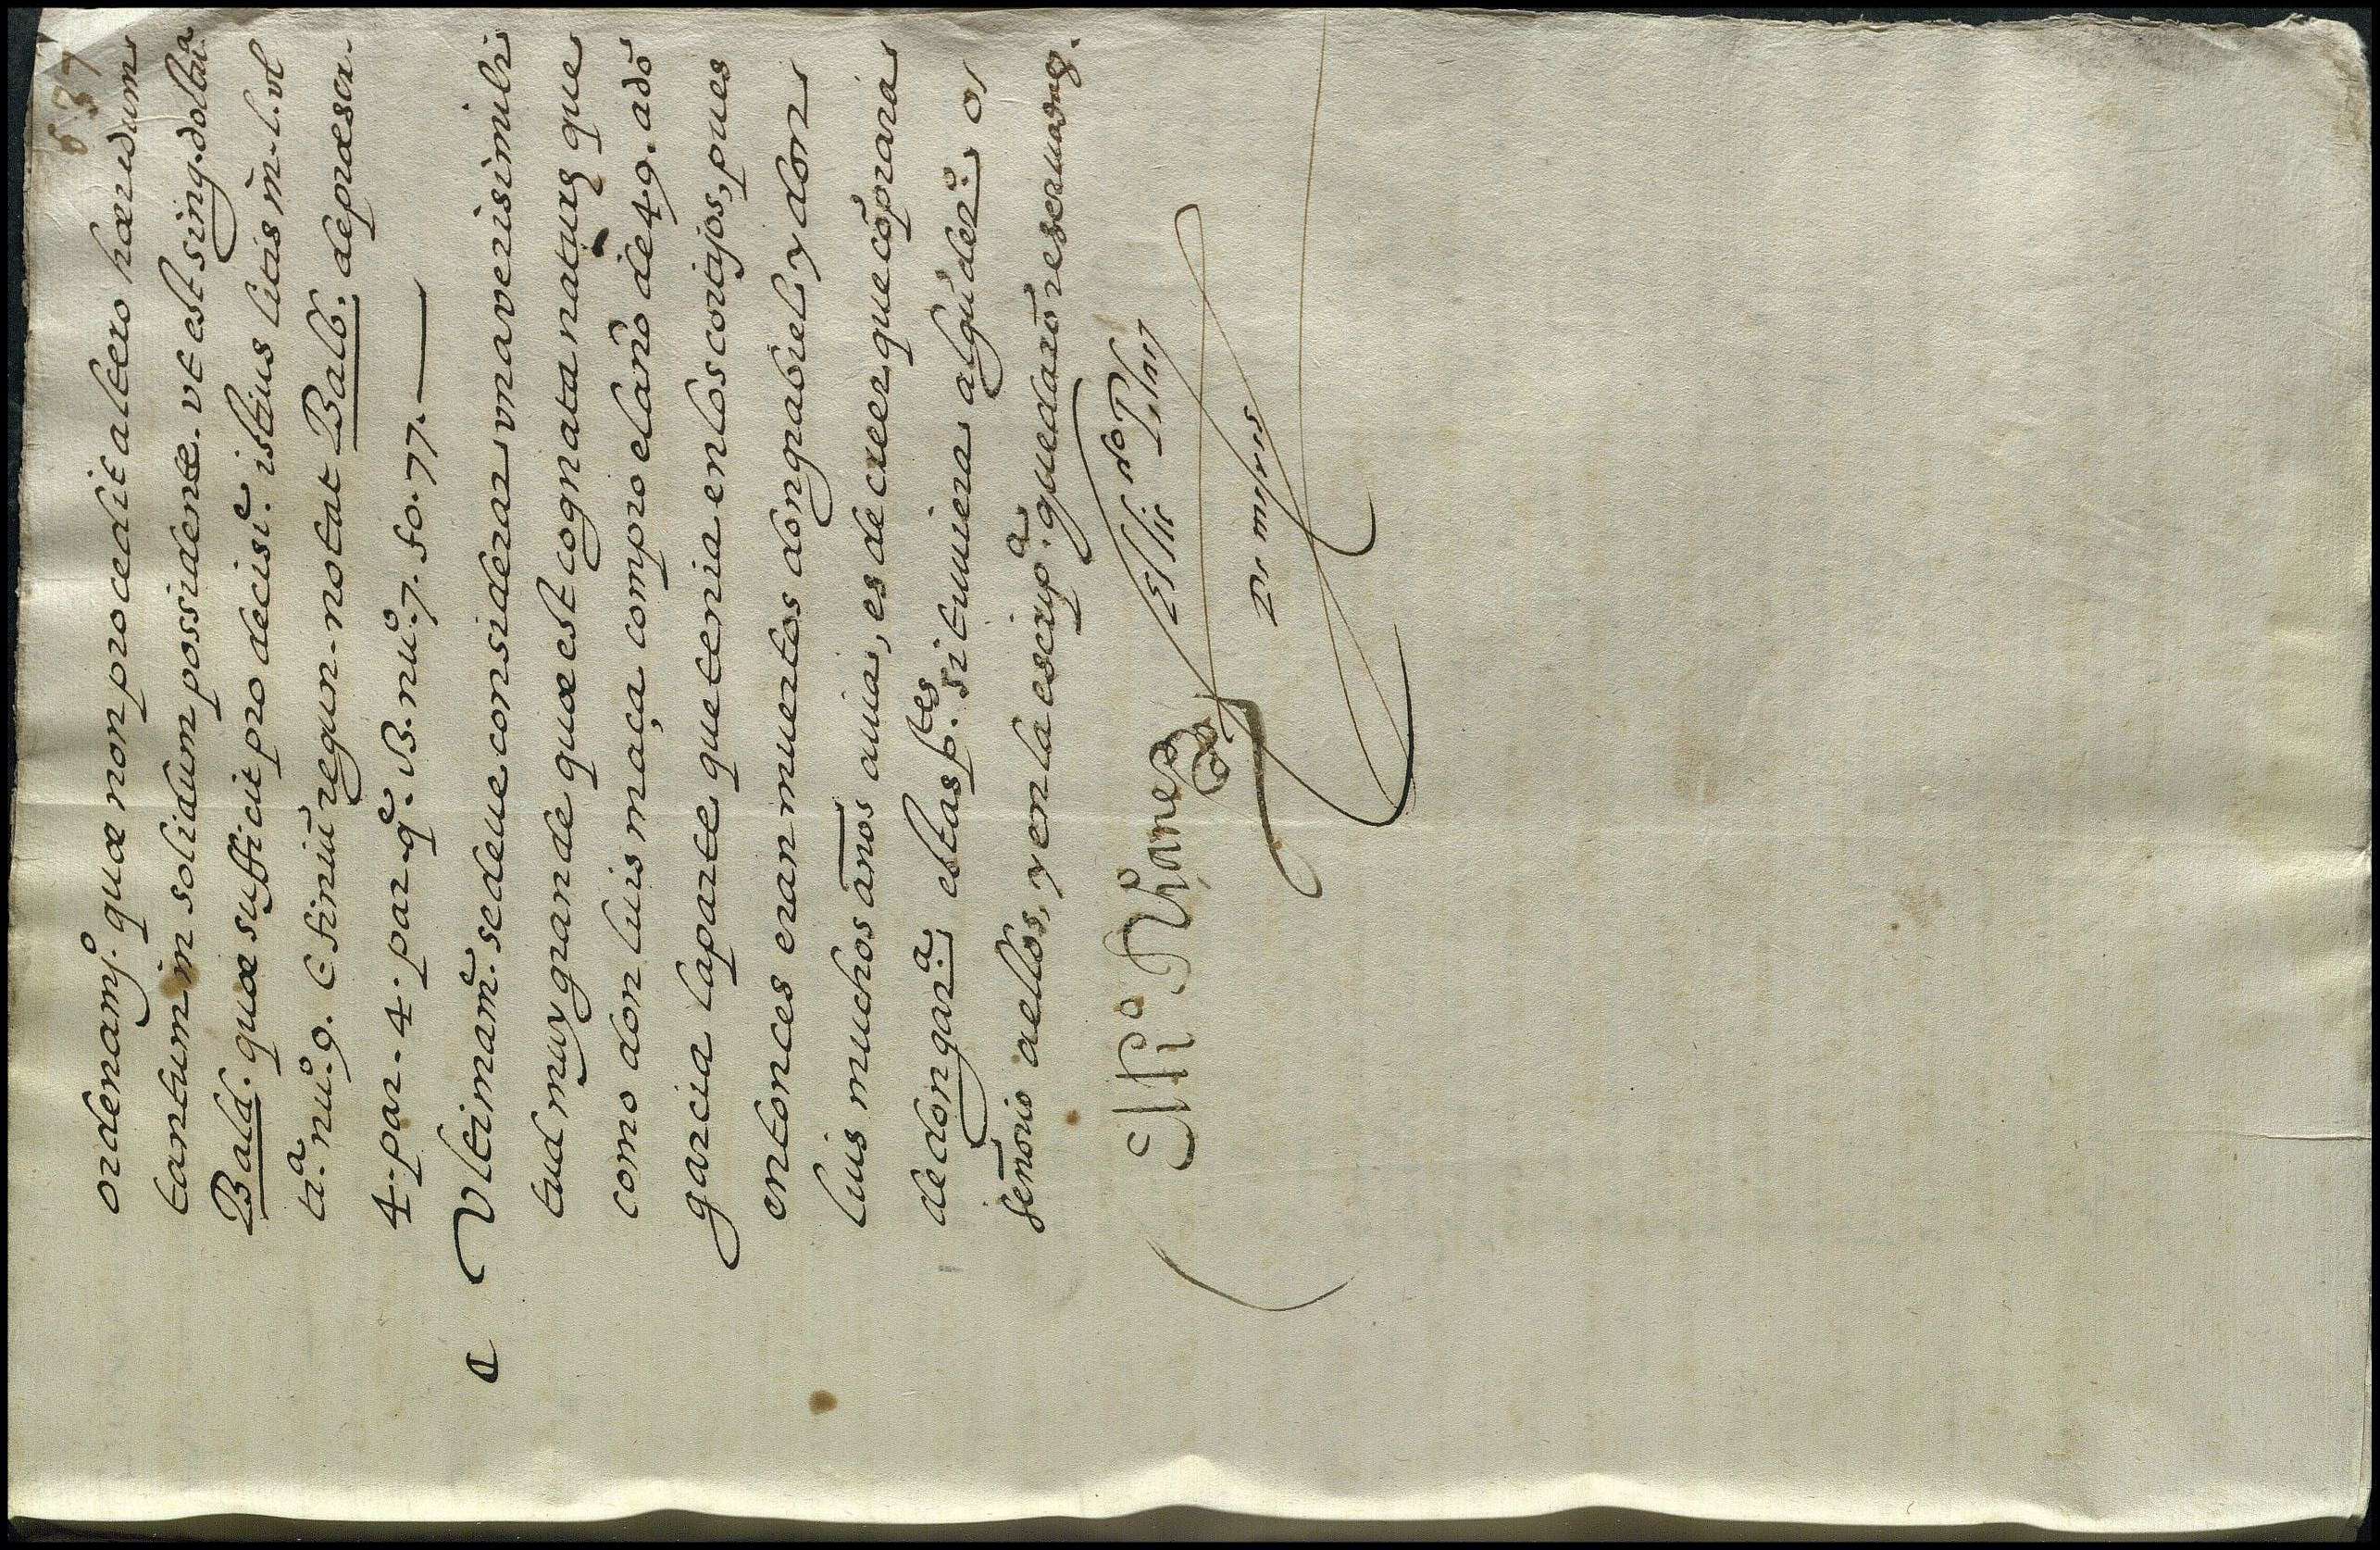 537
ordenamj.º quæ non procedit altero hæredum
tantum in solidum possidente. vt est sing. doctri.ª
Bald. quæ sufficit pro decisi.e istius litis in l. vl
ti.ª nu.º 9. C finiũ regun. notat Balb. de præscr.
4. par. 4. par. q.e B. nu.º 7. fo. 77.
Vltimam.e se deue considerar vna verisimili
tud muy grande quæ est cognata naturę que
como don luis maça compro el año de 49. a dõ
garcia la parte que tenia en los cortijos, pues
entonces eran muertos don gabriel y don
luis muchos años auia, es de creer que cõpraria
de don gar.ª estas p.tes si tuuiera algũ der.º o
señorio a ellos, y en la escrip.ª quedarõ reseruados.
El l.do
El lic.do